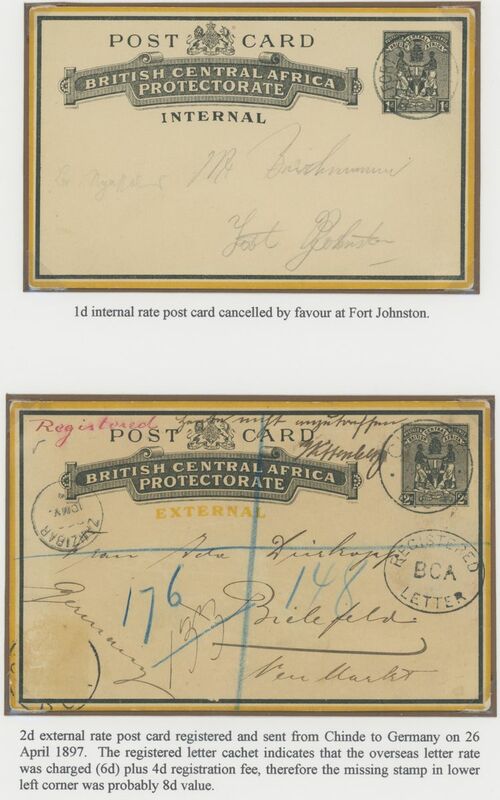 POST CARD
BRITISH CENTRAL AFRICA
PROTECTORATE
INTERNAL
1d 1d
Mr
Fort Johnston
1d internal rate post card cancelled by favour at Fort Johnston.
Registered
POST CARD
BRITISH CENTRAL AFRICA
PROTECTORATE
EXTERNAL
2d 2d
ZANZIBAR
REGISTERED
BCA
LETTER
Frau Ida
176
148
133
Bielefeld
Germany
Neu Markt
2d external rate post card registered and sent from Chinde to Germany on 26
April 1897. The registered letter cachet indicates that the overseas letter rate
was charged (6d) plus 4d registration fee, therefore the missing stamp in lower
left corner was probably 8d value.